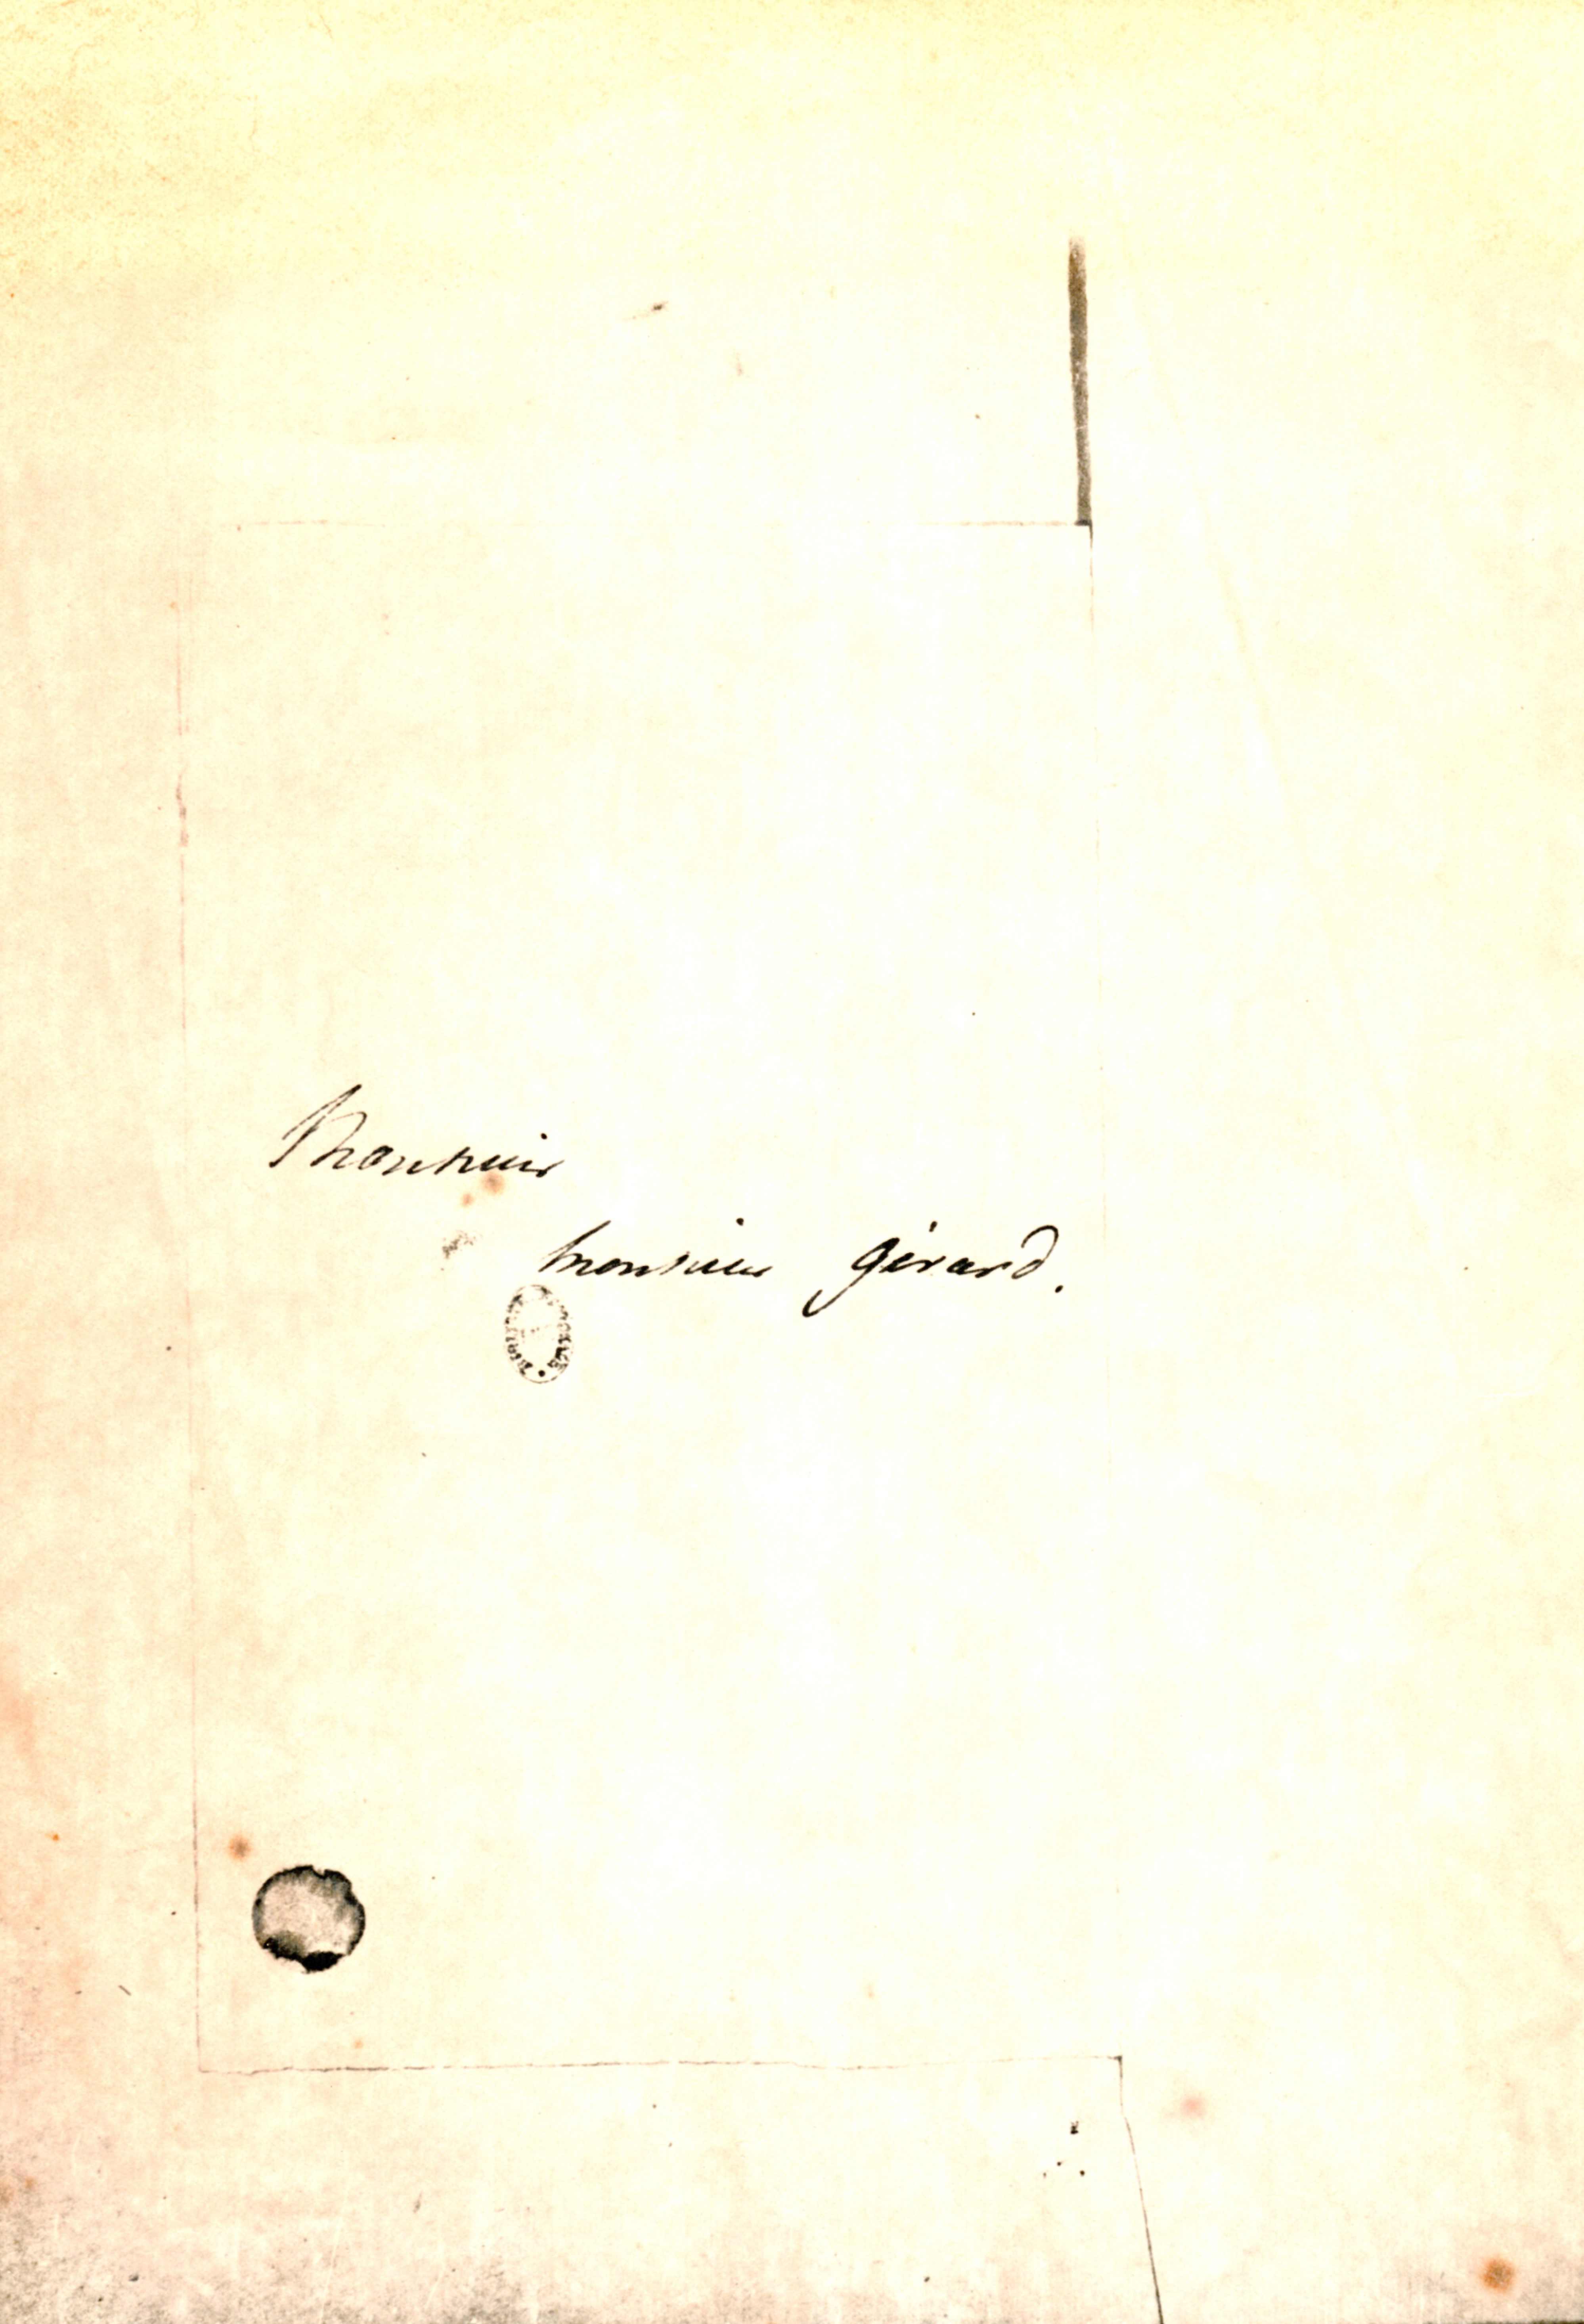 Monsieur
monsieur gérard.